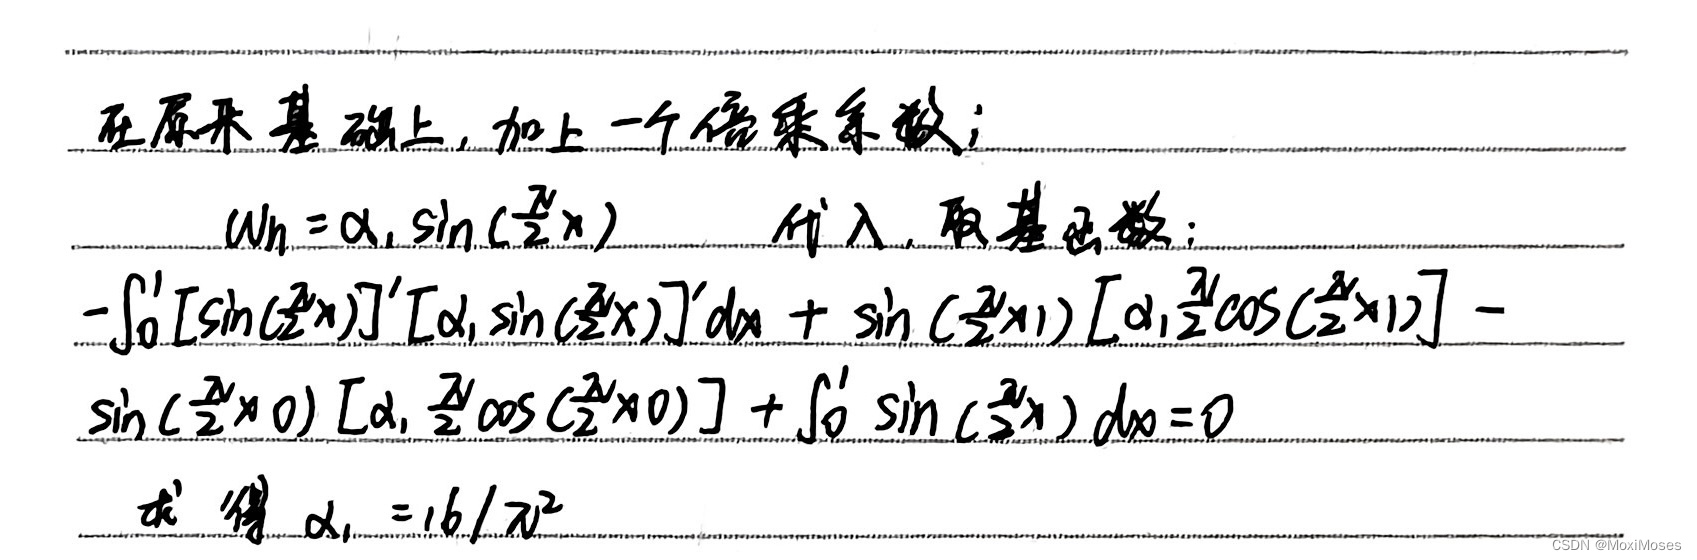 在原来基础上,加上一个倍乘系数;
Wh = α₁ sin(π/2 x) 代入,取基函数:
-∫₀¹ [sin(π/2 x)]′ [α₁ sin(π/2 x)]′ dx + sin(π/2 × 1) [α₁ π/2 cos(π/2 × 1)] -
sin(π/2 × 0) [α₁ π/2 cos(π/2 × 0)] + ∫₀¹ sin(π/2 x) dx = 0
求得 α₁ = 16/π²
CSDN @MoxiMoses